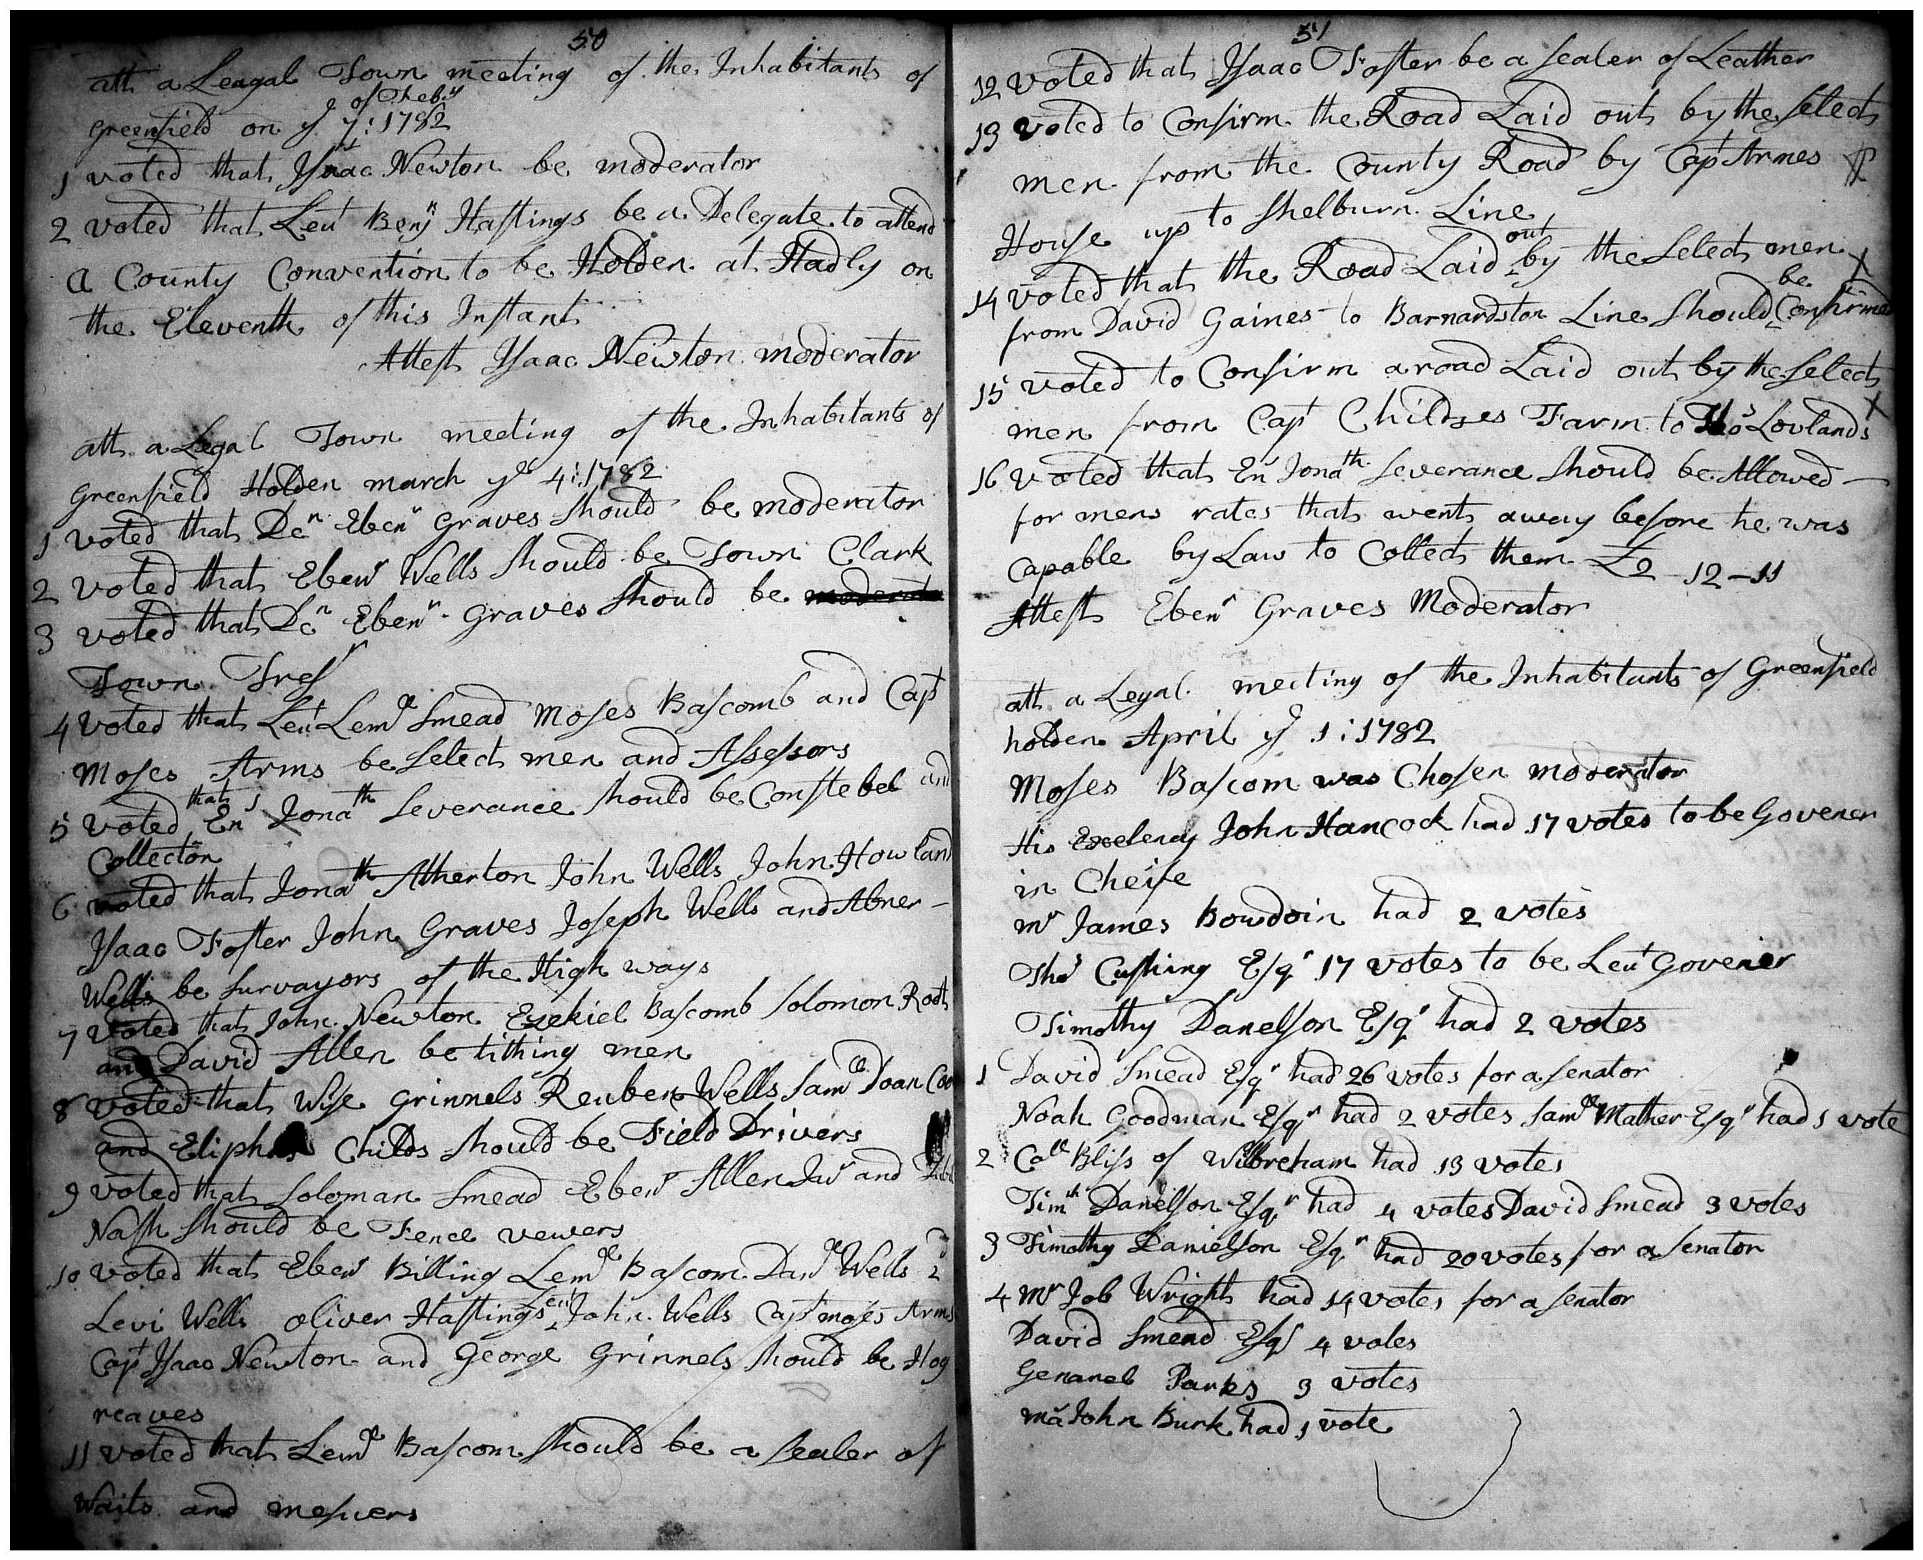 50
att a Leagal Town meeting of the Inhabitants of
Greenfield on ye 7: of Feby 1782
1 voted that Isaac Newton be moderator
2 voted that Leut Benjn Hastings be a Delegate to attend
a County Convention to be Holden at Hadly on
the Eleventh of this Instant
Attest Isaac Newton moderator
att a Legal Town meeting of the Inhabitants of
Greenfield Holden march ye 4: 1782
1 voted that Dcn Ebenr Graves Should be moderator
2 voted that Ebenr Wells Should be Town Clark
3 voted that Dcn Ebenr Graves Should be moderator
Town Tresr
4 voted that Leut Lemll Smead Moses Bascomb and Capt
Moses Arms be Select men and Assessors
5 voted that Ens Jonath Severance Should be Constebel and
Collector
6 voted that Jonath Atherton John Wells John Howland
Isaac Foster John Graves Joseph Wells and Abner
Wells be Survayors of the High ways
7 voted that John Newton Ezekiel Bascomb Solomon Root
and David Allen be tithing men
8 voted that Wise Grinnels Reuben Wells Samll Doan
and Childs Should be Field Drivers
9 voted that Soloman Smead Ebenr Allen Junr and
Nash Should be Fence vewers
10 voted that Ebenr Billing Lemll Bascom Danll Wells 2d
Levi Wells Oliver Hastings John Wells Capt moses Arms
Capt Isaac Newton and George Grinnels Should be Hog
reaves
11 voted that Lemll Bascom Should be a Sealer of
Waits and mesuers
51
12 voted that Isaac Foster be a Sealer of Leather
13 voted to Confirm the Road Laid out by the Select
men from the County Road by Capt Armes
House up to Shelburn Line
14 voted that the Road Laid out by the Select men
from David Gaines to Barnardston Line Should be Confirmed
15 voted to Confirm a road Laid out by the Select
men from Capt Childses Farm to Thos Lovlands
16 voted that En Jonath Severance Should be Allowed
for mens rates that went away before he was
Capable by Law to Collect them £2-12-11
Attest Ebenr Graves Moderator
att a Legal meeting of the Inhabitants of Greenfield
holden April ye 1: 1782
Moses Bascom was Chosen moderator
His Excelency John Hancock had 17 votes to be Govener
in Cheife
mr James Bowdoin had 2 votes
Thos Cushing Esqr 17 votes to be Leut Govener
Timothy Danelson Esqr had 2 votes
1 David Smead Esqr had 26 votes for a Senator
Noah Goodman Esqr had 2 votes Samll Mather Esqr had 1 vote
2 Coll Bliss of Wilbreham had 13 votes
Timth Danelson Esqr had 4 votes David Smead 3 votes
3 Timothy Danielson Esqr had 20 votes for a Senator
4 Mr Job Wright had 14 votes for a Senator
David Smead Esqr 4 votes
Genarel Parks 3 votes
mr John Burk had 1 vote